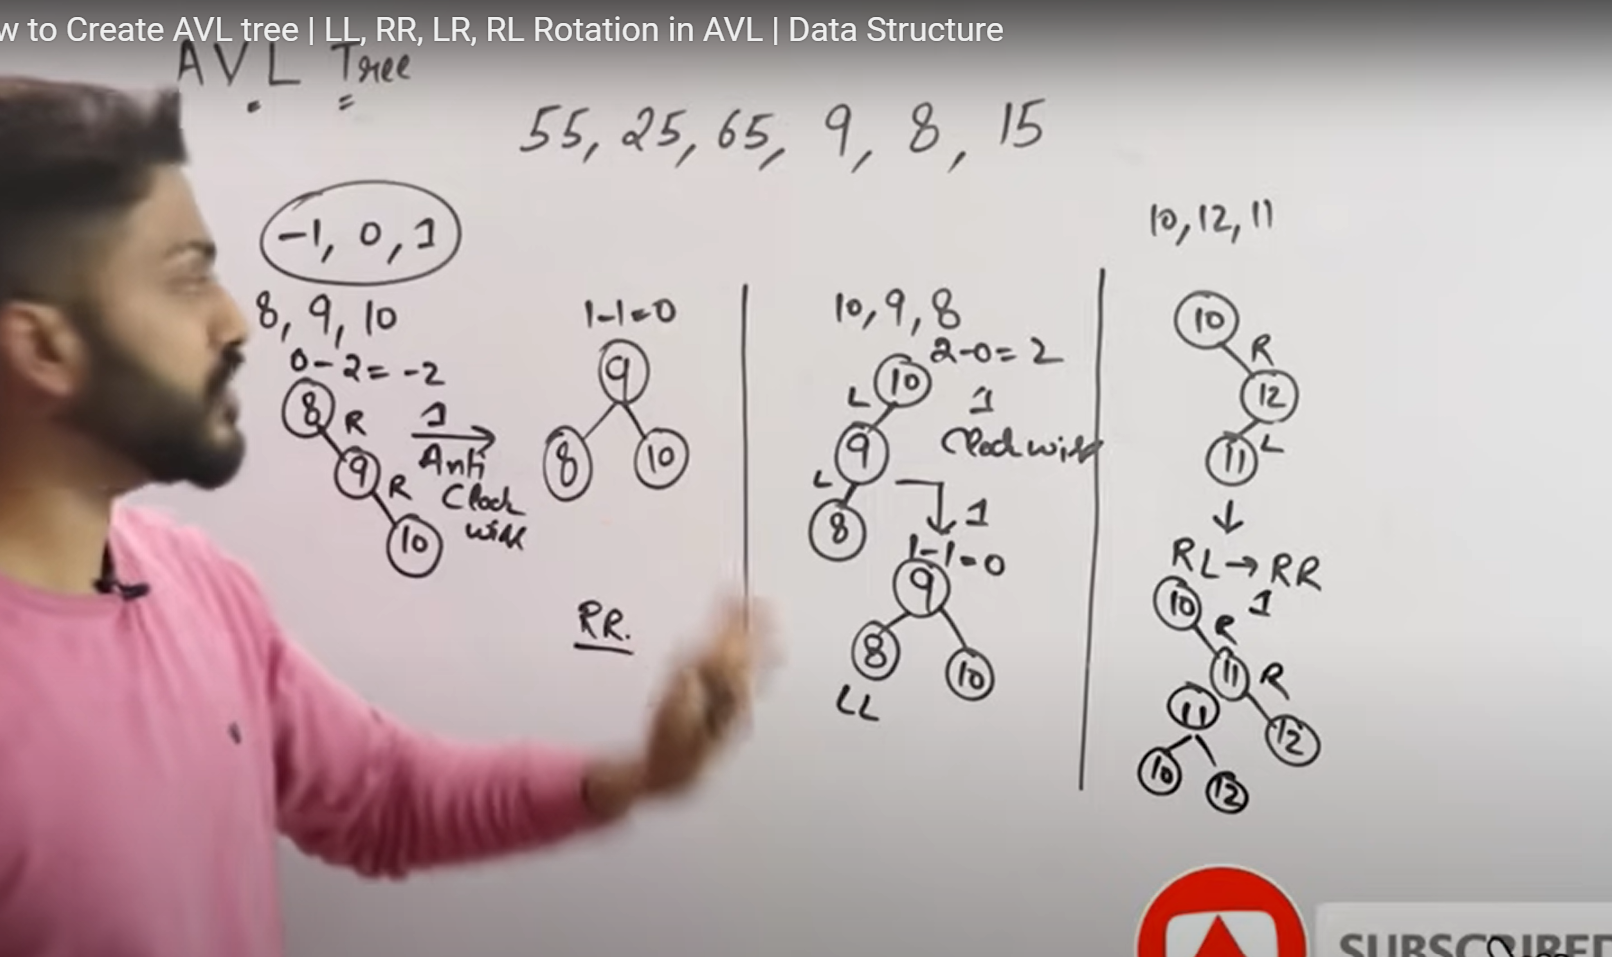 w to Create AVL tree | LL, RR, LR, RL Rotation in AVL | Data Structure
AVL Tree
55, 25, 65, 9, 8, 15
-1, 0, 1
8, 9, 10
0-2=-2
8
R
9
R
10
1
Anti
Clock
wise
1-1=0
9
8
10
RR.
10, 9, 8
2-0=2
10
L
9
L
8
1
Clockwise
1
1-1=0
9
8
10
LL
10, 12, 11
10
R
12
L
11
RL→RR
1
10
R
11
R
12
11
10
12
SUBSCRIBED